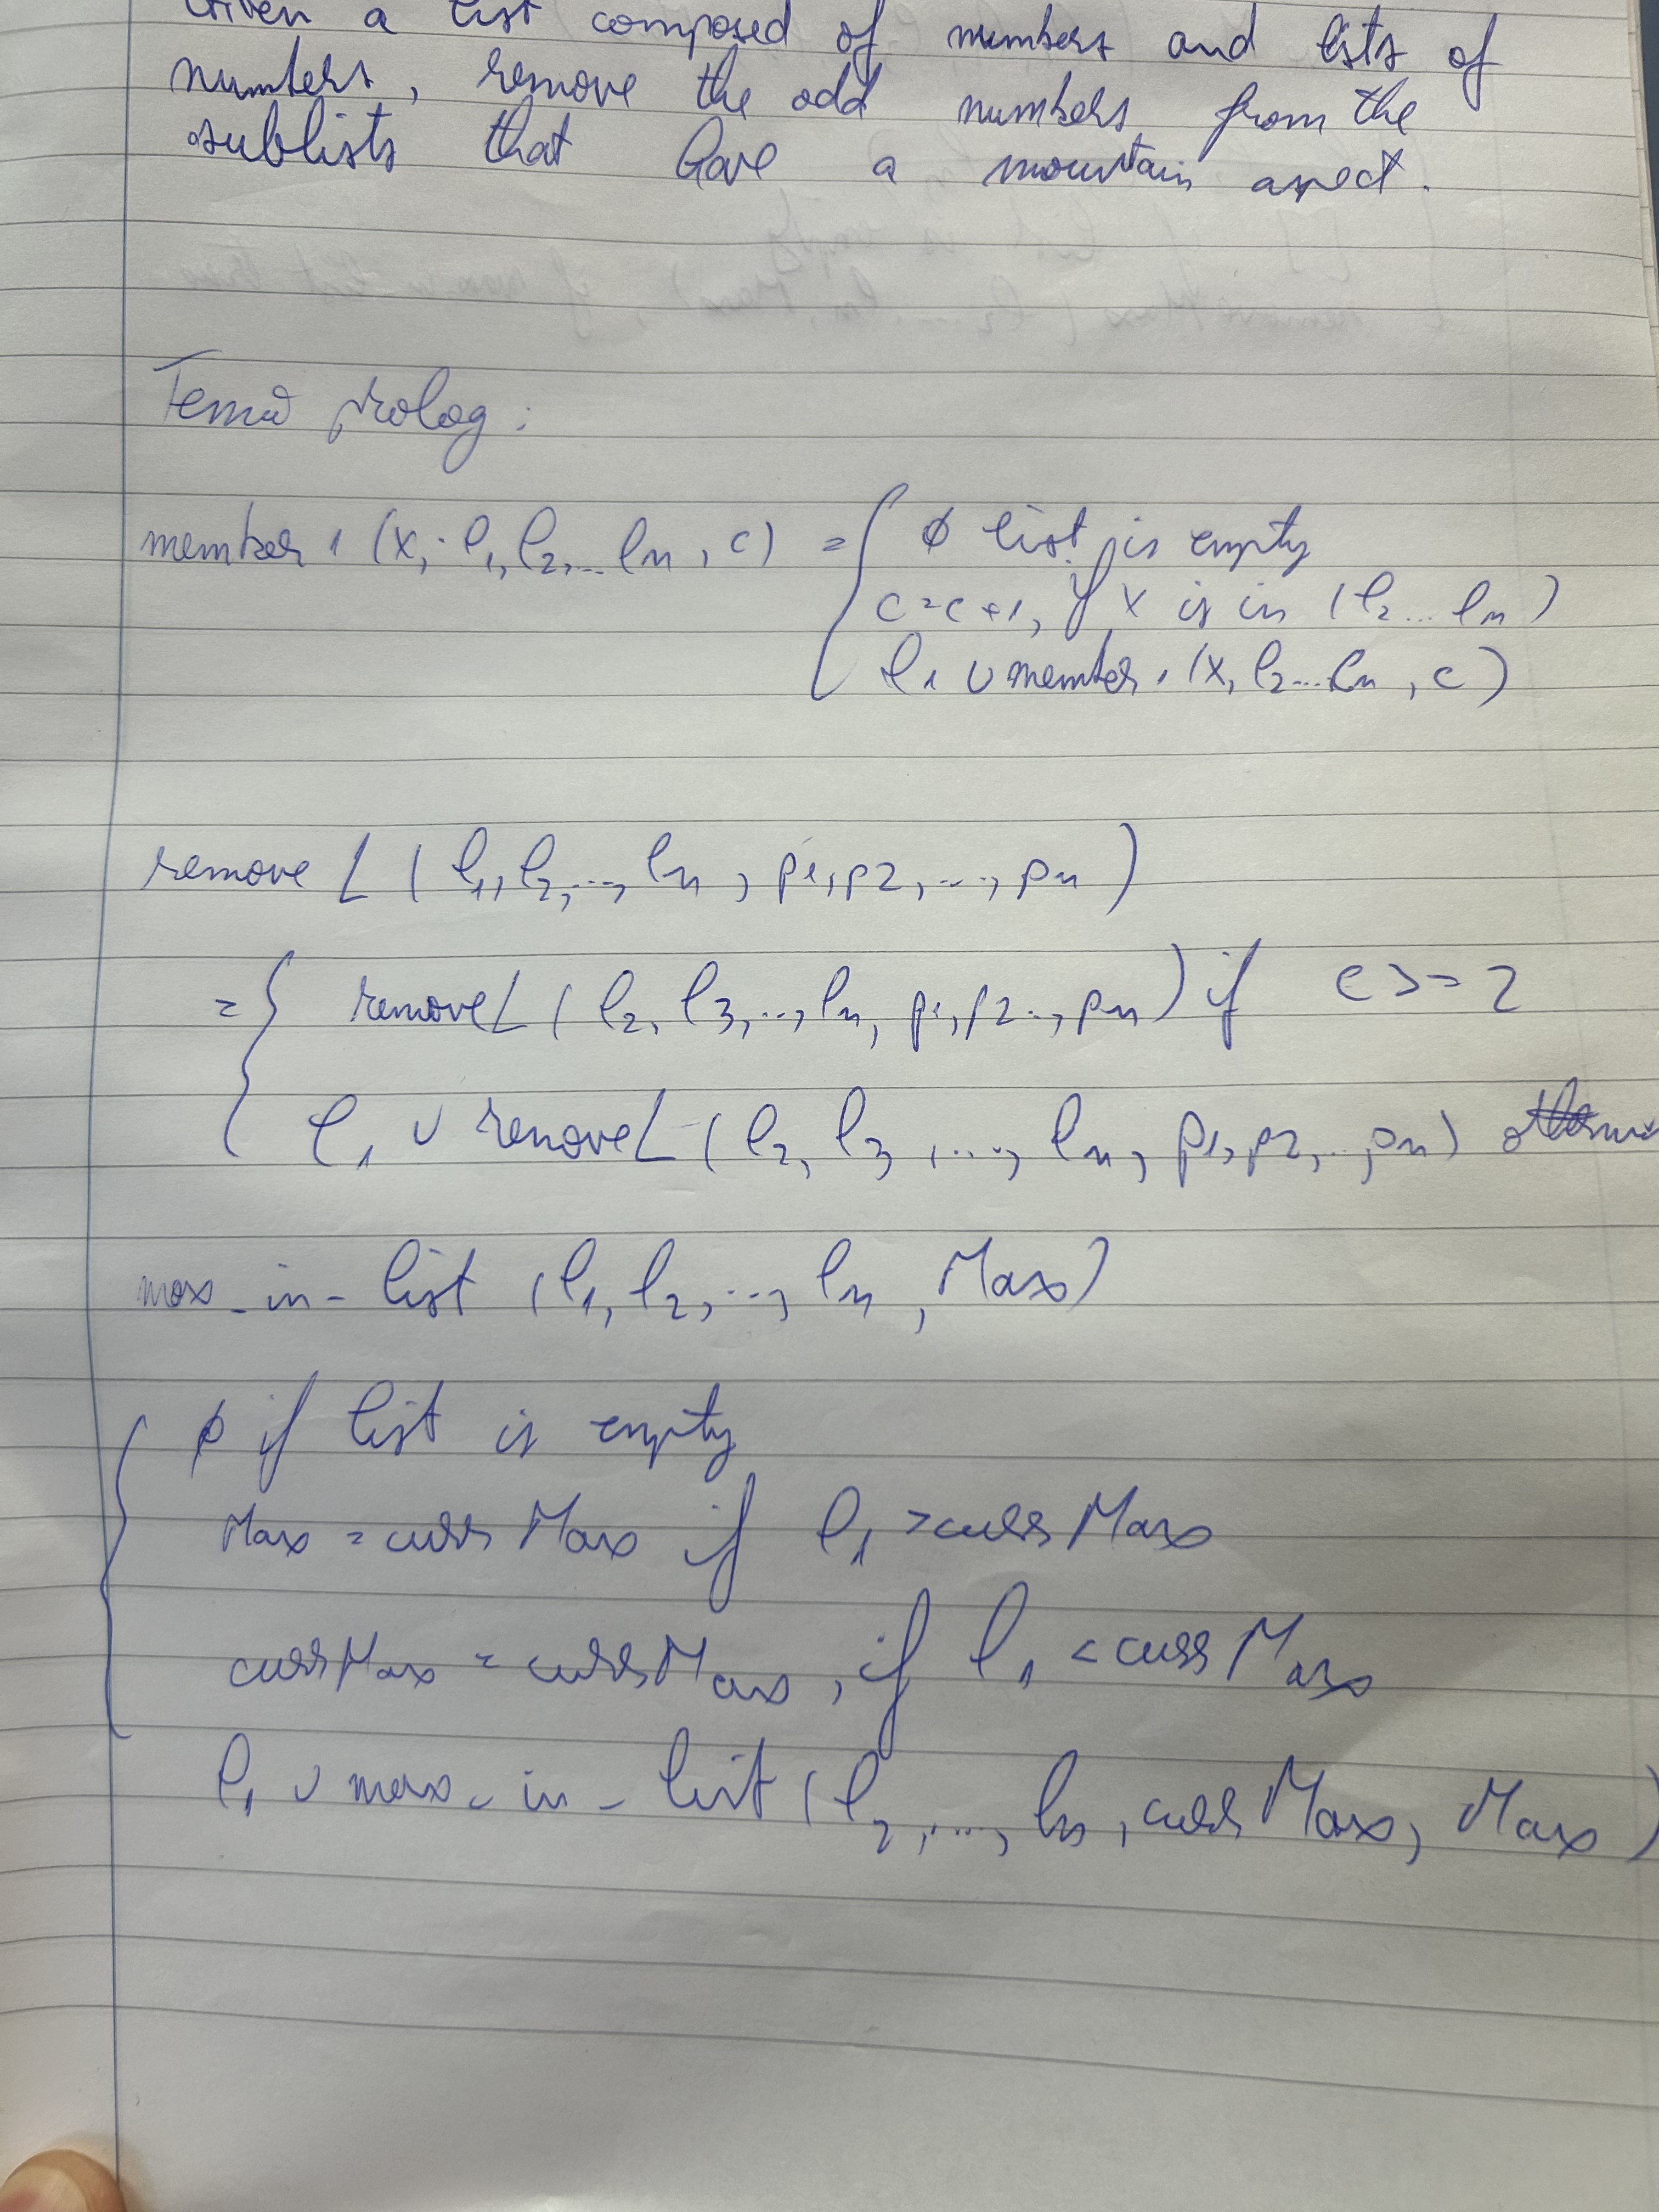 Given a list composed of numbers and lists of
numbers, remove the odd numbers from the
sublists that have a mountain aspect.
Temă prolog:
member 1 (x, l1, l2, ... ln, c) = { ∅ list is empty
c = c +1, if x is in (l2 ... ln)
l1 ∪ member 1 (x, l2 ... ln, c)
remove L ( l1, l2, ..., ln, p1, p2, ..., pn )
= { removeL ( l2, l3, ..., ln, p1, p2 .., pn ) if c >= 2
l1 ∪ removeL ( l2, l3, ..., ln, p1, p2, .., pn )
max_in_list (l1, l2, ..., ln, Max)
{ ∅ if list is empty
Max = currMax if l1 > currMax
currMax = currMax, if l1 < currMax
l1 ∪ max_in_list (l2, ..., ln, currMax, Max)